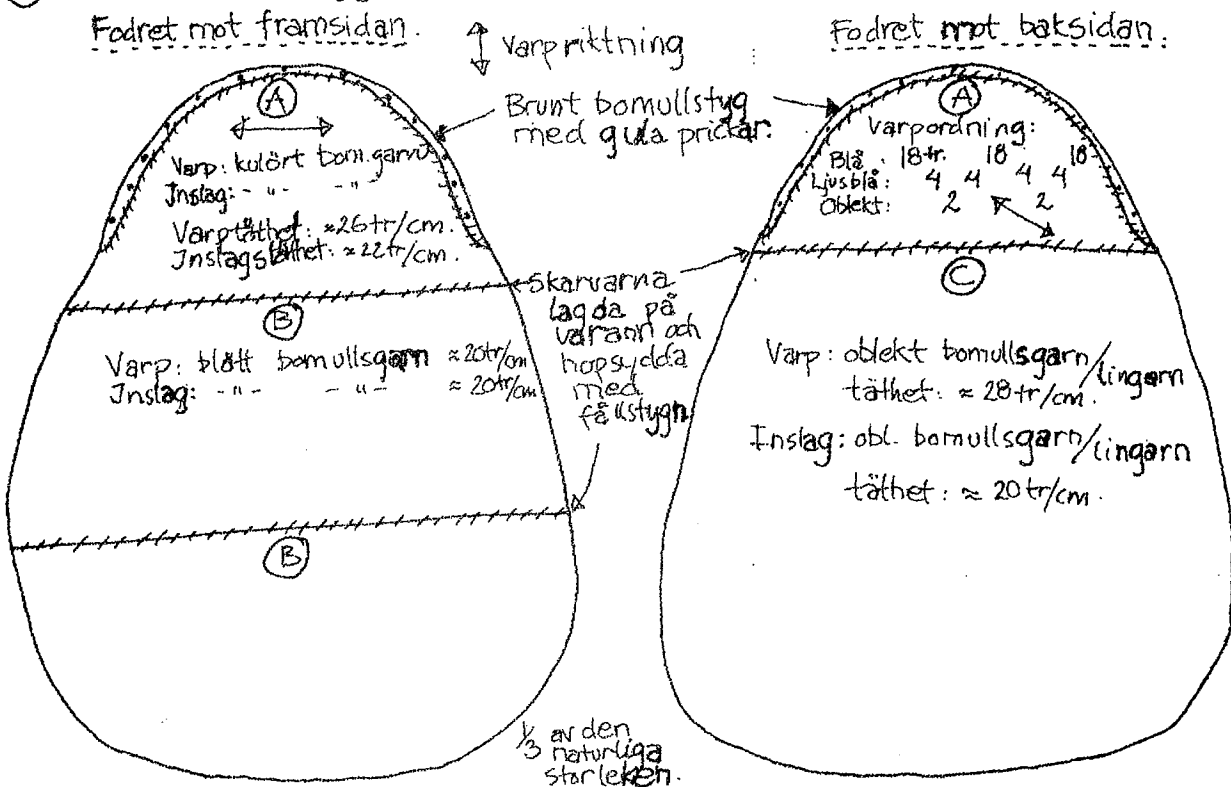 Fodret mot framsidan.
Varpriktning
Fodret mot baksidan.
Brunt bomullstyg
med gula prickar.
A
Varp: kulört bom.garn
Inslag: - " - - " -
Varptäthet: ≈26tr/cm.
Inslagstäthet: ≈22tr/cm.
B
Varp: blått bomullsgarn ≈20tr/cm
Inslag: - " - - " - ≈20tr/cm
B
Skarvarna
lagda på
varann och
hopsydda
med
fållstygn
A
Varpordning:
Blå: 18tr. 18 18
Ljusblå: 4 4 4 4
Oblekt: 2 2
C
Varp: oblekt bomullsgarn/lingarn
täthet: ≈ 28tr/cm.
Inslag: obl. bomullsgarn/lingarn
täthet: ≈ 20tr/cm.
1/3 av den
naturliga
storleken.